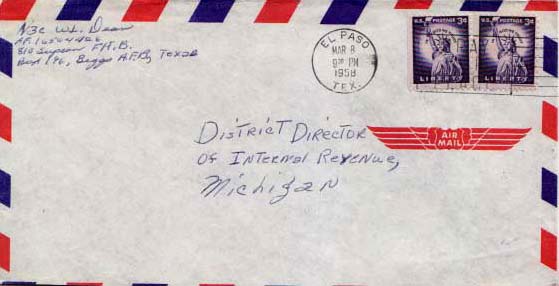 W. Dean
Box 196, Biggs AFB, Texas
EL PASO
MAR 8
PM
1958
TEX.
U.S. POSTAGE 3¢
LIBERTY
U.S. POSTAGE 3¢
LIBERTY
AIR
MAIL
District Director
Of Internal Revenue,
Michigan